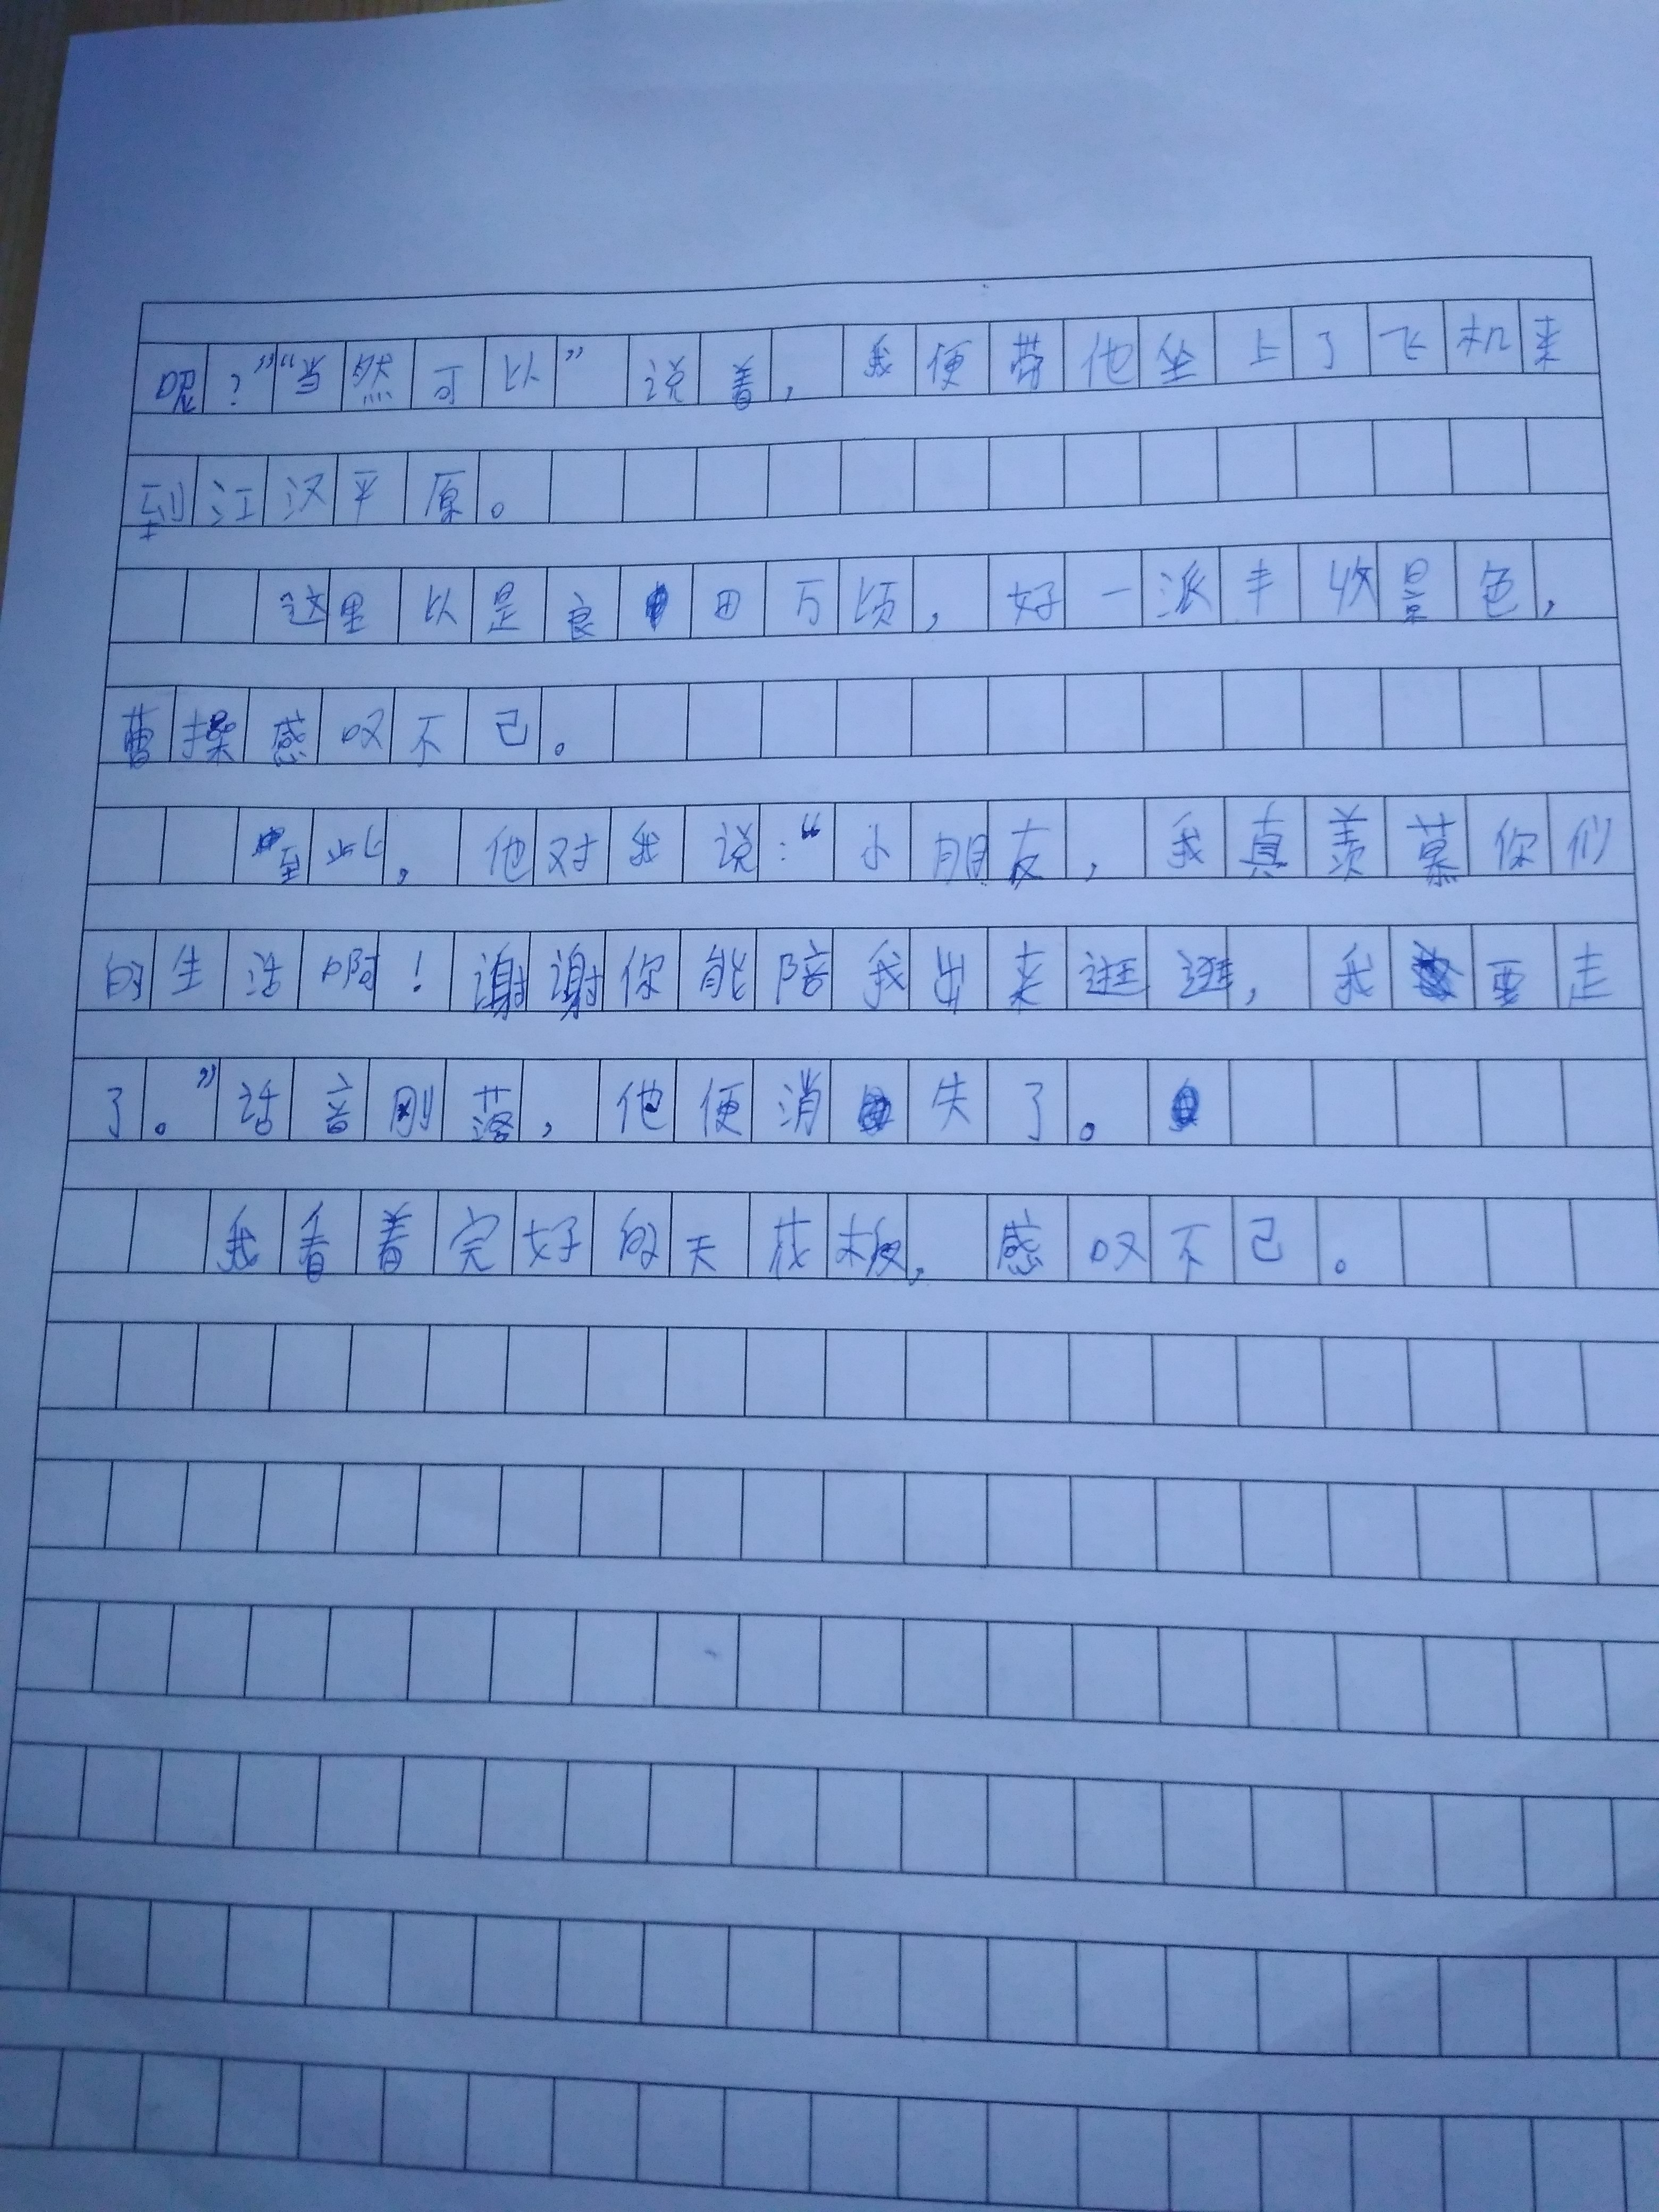 呢？”“当然可以”说着，我便带他坐上了飞机来
到江汉平原。
这里以是良田万顷，好一派丰收景色，
曹操感叹不已。
至此，他对我说：“小朋友，我真羡慕你们
的生活啊！谢谢你能陪我出来逛逛，我要走
了。”话音刚落，他便消失了。
我看着完好的天花板，感叹不已。